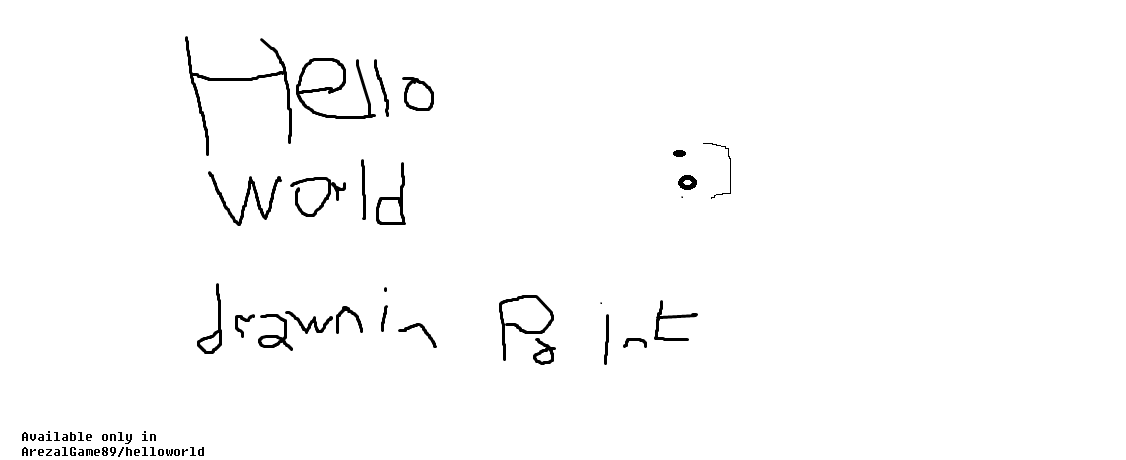 Hello
World
drawn in Paint
Available only in
ArezalGame89/helloworld